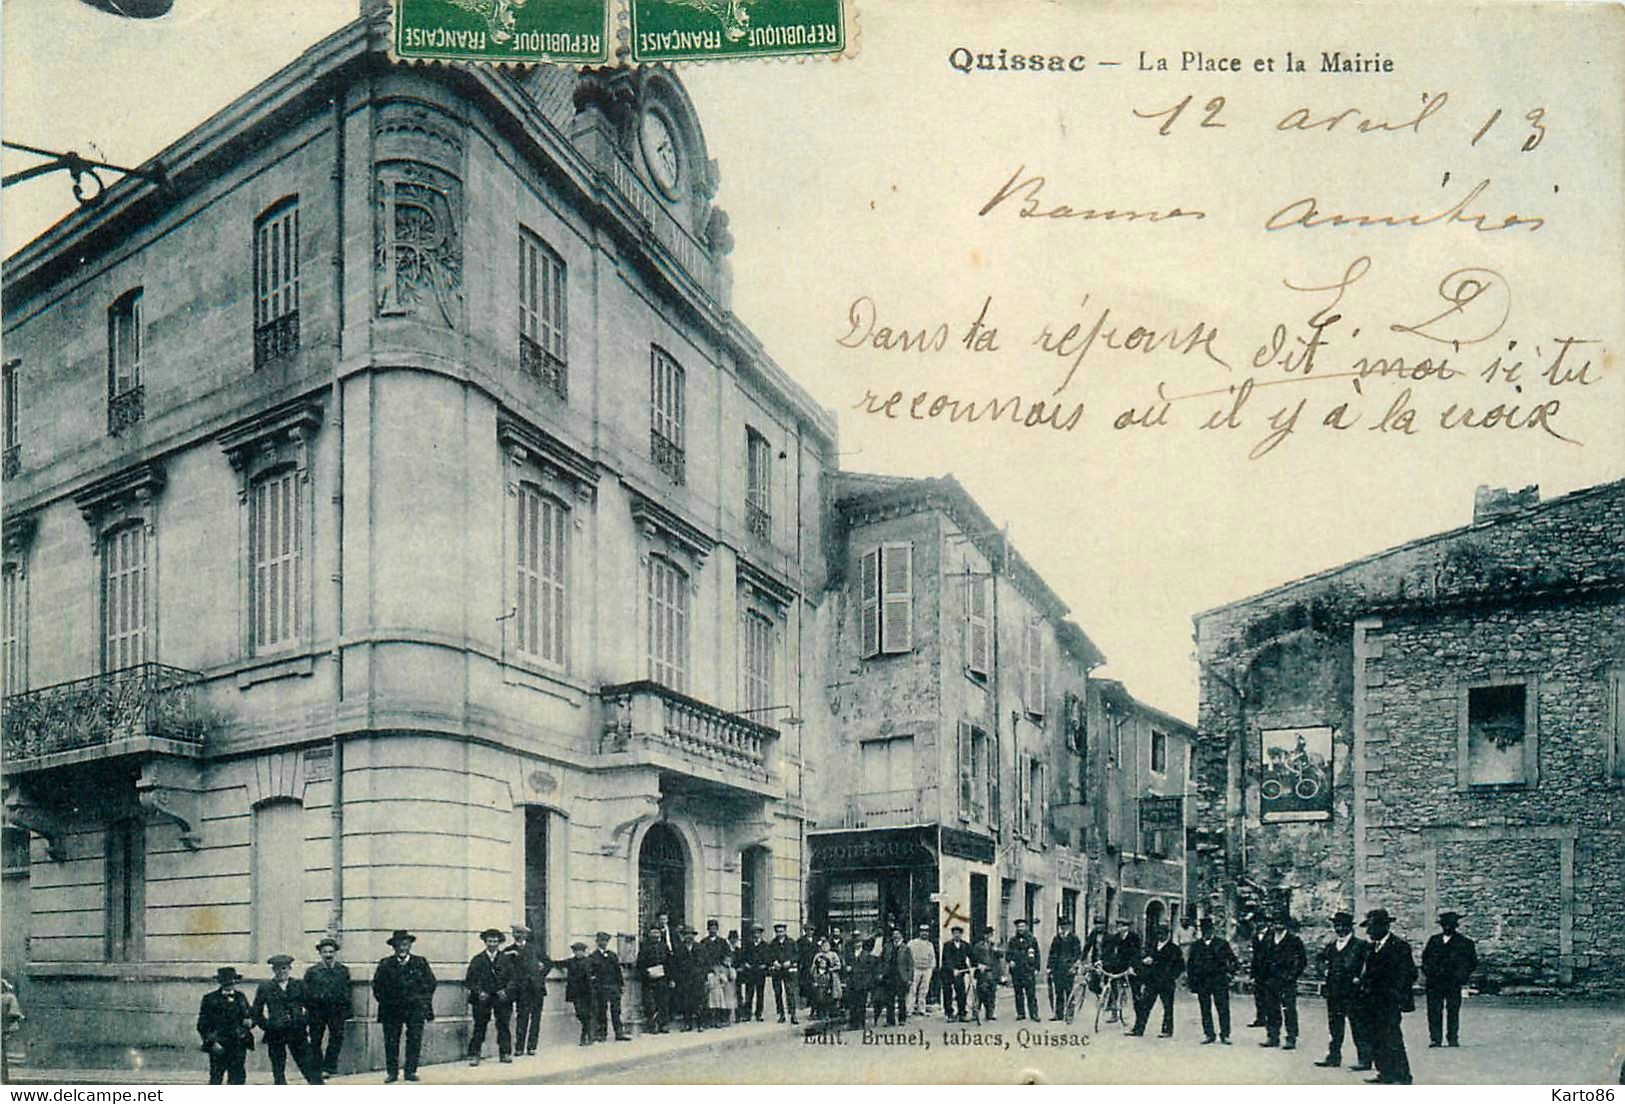 REPUBLIQUE FRANÇAISE REPUBLIQUE FRANÇAISE
Quissac — La Place et la Mairie
12 avril 13
Bonnes Amitiés
E D
Dans ta réponse dit moi si tu
reconnais où il y à la croix
RF
COIFFEUR
X
Edit. Brunel, tabacs, Quissac
Karto86